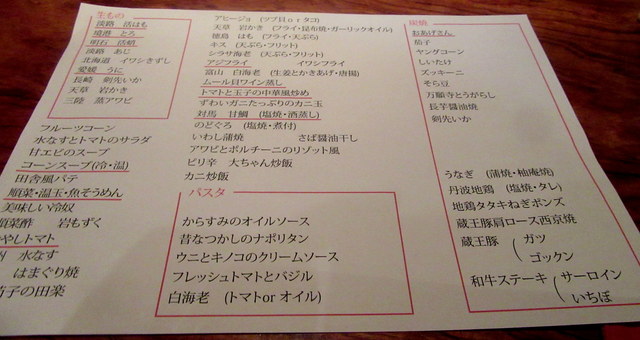 生もの
淡路　活はも
境港　とろ
明石　活蛸
淡路　あじ
北海道　イワシきずし
愛媛　うに
長崎　剣先いか
天草　岩かき
三陸　蒸アワビ
フルーツコーン
水なすとトマトのサラダ
甘エビのスープ
コーンスープ(冷・温)
田舎風パテ
順菜・温玉・魚そうめん
美味しい冷奴
順菜酢　岩もずく
やしトマト
水なす
はまぐり焼
茄子の田楽
アヒージョ (ツブ貝orタコ)
天草　岩かき (フライ・昆布焼・ガーリックオイル)
徳島　はも (フライ・天ぷら)
キス (天ぷら・フリット)
シラサ海老 (天ぷら・フリット)
アジフライ　イワシフライ
富山　白海老 (生姜とかきあげ・唐揚)
ムール貝ワイン蒸し
トマトと玉子の中華風炒め
ずわいガニたっぷりのカニ玉
対馬　甘鯛 (塩焼・酒蒸し)
のどぐろ (塩焼・煮付)
いわし蒲焼　さば醤油干し
アワビとポルチーニのリゾット風
ピリ辛　大ちゃん炒飯
カニ炒飯
パスタ
からすみのオイルソース
昔なつかしのナポリタン
ウニとキノコのクリームソース
フレッシュトマトとバジル
白海老 (トマトor オイル)
炭焼
おあげさん
茄子
ヤングコーン
しいたけ
ズッキーニ
そら豆
万願寺とうがらし
長芋醤油焼
剣先いか
うなぎ (蒲焼・柚庵焼)
丹波地鶏 (塩焼・タレ)
地鶏タタキねぎポンズ
蔵王豚肩ロース西京焼
蔵王豚 ( ガツ
ゴックン
和牛ステーキ ( サーロイン
いちぼ